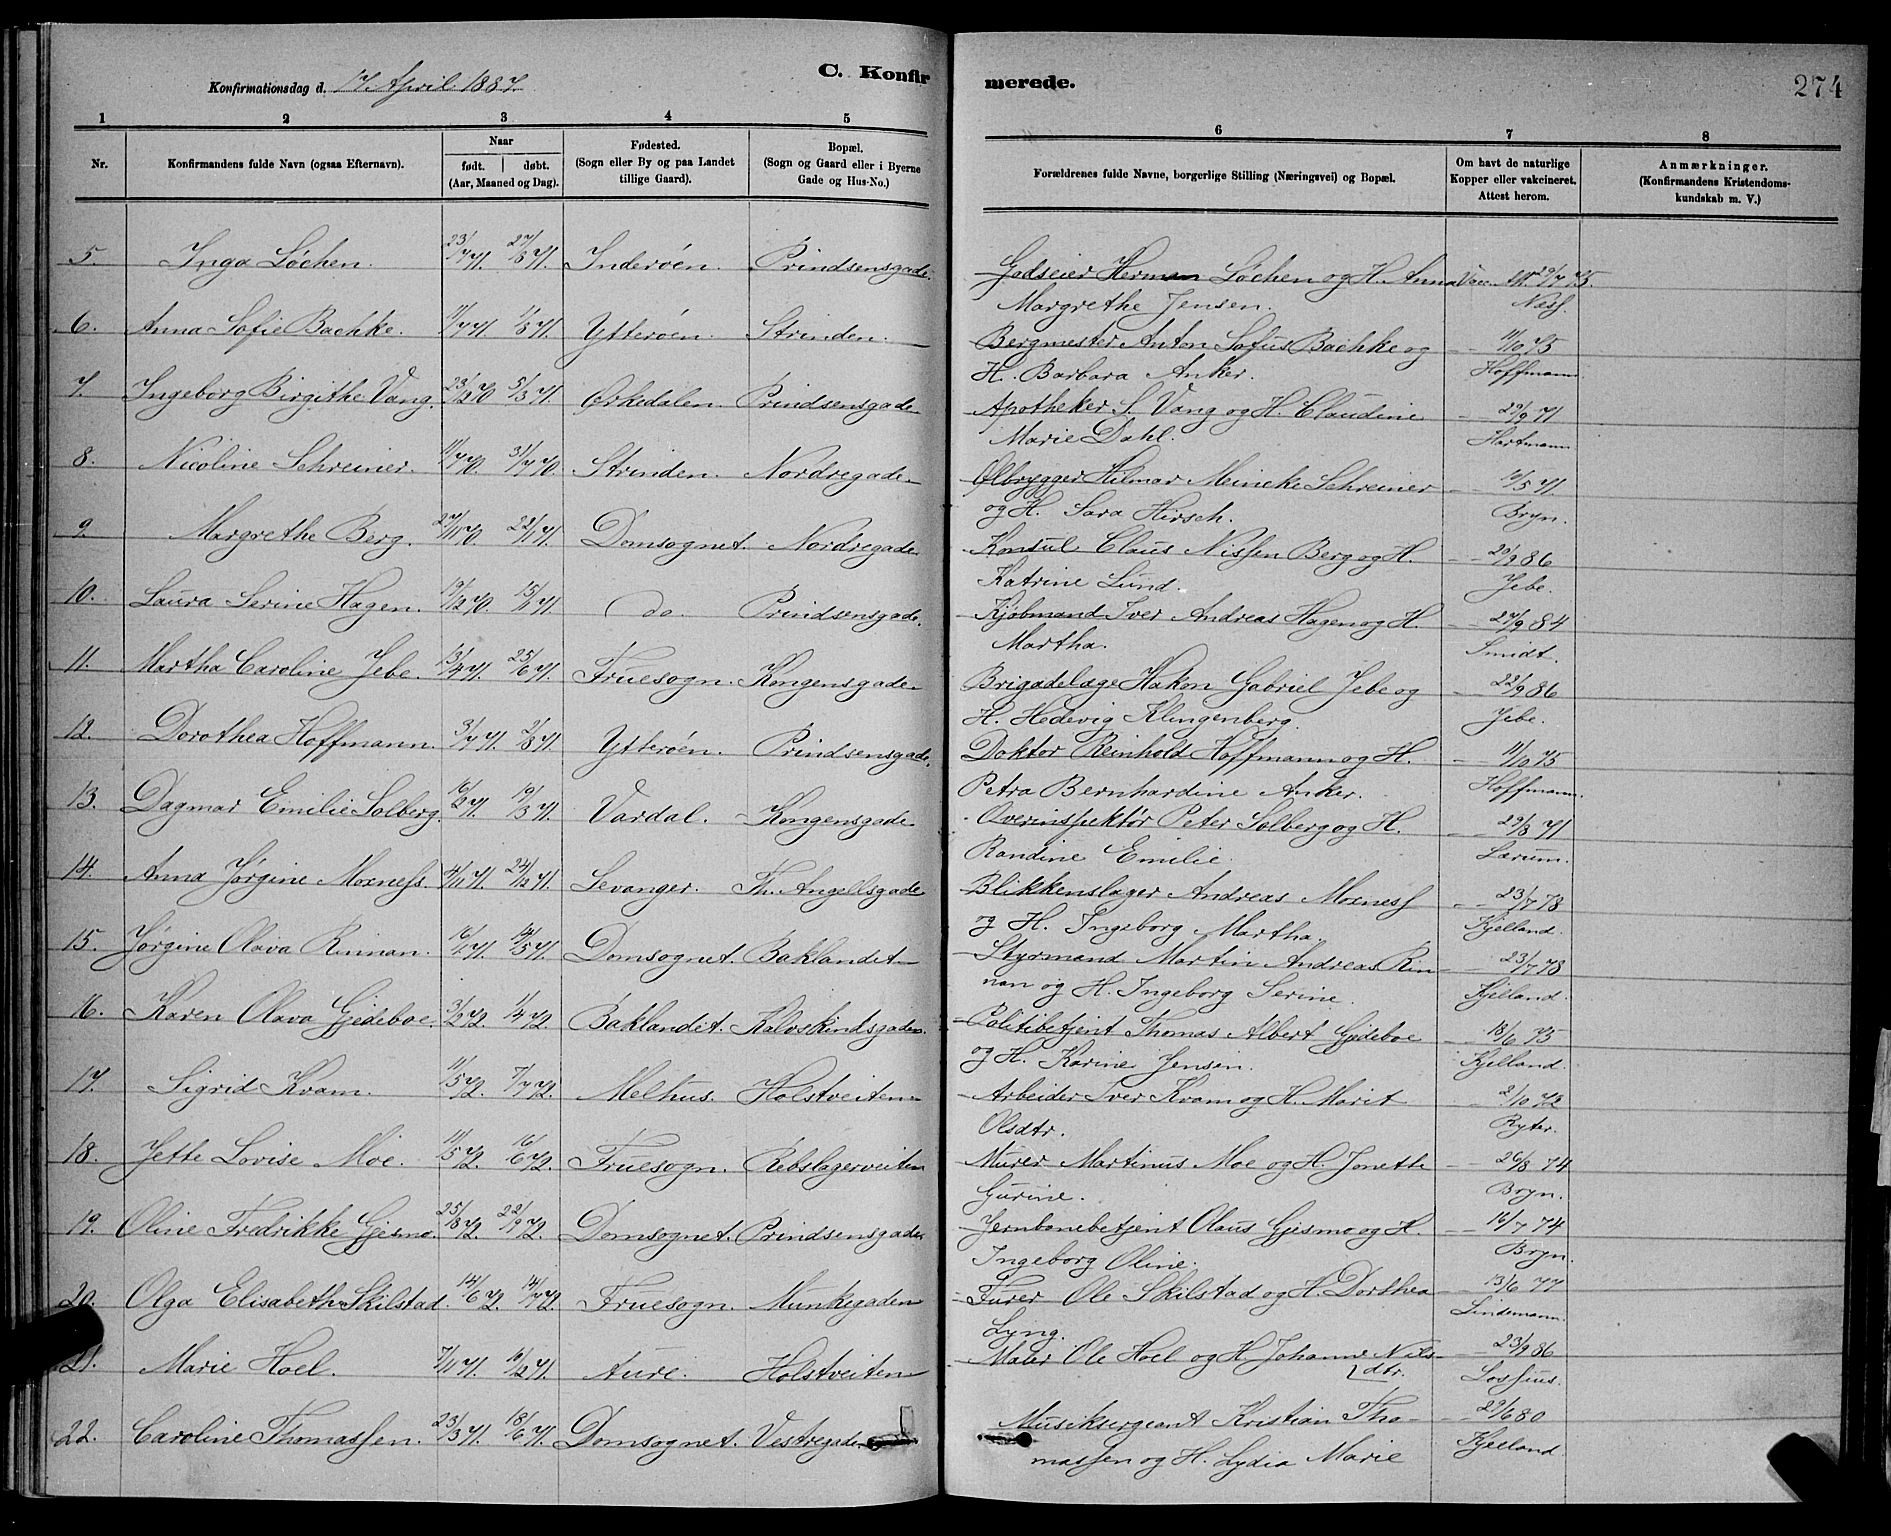 Konfirmationsdag d. 17. April 1887. C. Konfirmerede. 274
1 2 3 4 5 6 7 8
Nr. Konfirmandens fulde Navn (ogsaa Efternavn). Naar født. døbt. (Aar, Maaned og Dag). Fødested. (Sogn eller By og paa Landet tillige Gaard). Bopæl. (Sogn og Gaard eller i Byerne Gade og Hus-No.) Forældrenes fulde Navne, borgerlige Stilling (Næringsvei) og Bopæl. Om havt de naturlige Kopper eller vakcineret. Attest herom. Anmærkninger. (Konfirmandens Kristendomskundskab m. V.)
5. Inga Löchen. 23/7 71. 27/8 71. Inderöen. Prindsensgade. Godseier Herman Löchen og H. Anna Vac. Att 29/7 75
Margrethe Jensen. Ness.
6. Anna Sofie Bachke. 11/7 71. 1/8 71. Ytteröen. Strinden. Bergmester Anton Sofus Bachke og 11/10 75
H. Barbara Anker. Hoffmann.
7. Ingeborg Birgithe Vang. 23/12 70 5/3 71. Orkedalen. Prindsensgade Apotheker S. Vang og H. Claudine 29/9 71
Marie Dahl. Hartmann
8. Nicoline Schreiner. 11/7 70. 31/7 70. Strinden. Nordregade. Ølbrygger Hilmar Meineke Schreiner 10/5 71
og H. Sara Hirsch. Bryn.
9. Margrethe Berg. 27/11 70. 22/1 71. Domsognet. Nordregade Konsul Claus Nissen Berg og H. 20/9 86
Katrine Lund. Jebe.
10. Laura Serine Hagen. 19/12 70. 15/6 71. do Prindsensgade. Kjøbmand Iver Andreas Hagen og H. 27/9 84
Martha. Smidt.
11. Martha Caroline Jebe. 13/4 71. 25/6 71. Fruesogn. Kongensgade Brigadelæge Hakon Gabriel Jebe og 22/9 86
H. Hedevig Klingenberg. Jebe.
12. Dorothea Hoffmann. 3/7 71. 2/8 71. Ytteröen. Prindsensgade. Doktor Reinhold Hoffmann og H. 11/10 75
Petra Bernhardine Anker. Hoffmann.
13. Dagmar Emilie Solberg. 16/2 71. 19/3 71. Vardal. Kongensgade Overinspektör Peter Solberg og H. 29/8 71
Randine Emilie. Lærum.
14. Anna Jørgine Moxness. 4/11 71. 24/12 71. Levanger. Th. Angellsgade Blikkenslager Andreas Moxness 23/7 78
og H. Ingeborg Martha. Kjelland.
15. Jørgine Olava Rinnan. 16/1 71. 14/5 71. Domsognet. Baklandet Styrmand Martin Andreas Rin- 23/7 78
nan og H. Ingeborg Serine. Kjelland.
16. Karen Olava Gjedeboe. 3/2 72. 1/4 72. Baklandet. Kalvskindsgaden. Politibetjent Thomas Albert Gjedeboe 18/6 75
og H. Karine Jensen. Kjelland.
17. Sigrid Kvam. 11/5 72. 7/7 72. Melhus. Holstveiten Arbeider Iver Kvam og H. Marit 2/10 72
Olsdtr. Ryter.
18. Jette Lovise Moe. 11/5 72. 16/6 72. Fruesogn. Rebslagerveiten Murer Martinus Moe og H. Jonette 26/8 74
Gurine. Bryn.
19. Oline Fredrikke Gjesmo. 25/8 72. 22/9 72. Domsognet. Prindsensgaden Jernbanebetjent Olaus Gjesmo og H. 16/7 74
Ingeborg Oline. Bryn.
20. Olga Elisabeth Skilstad. 14/6 72. 14/7 72. Fruesogn. Munkegaden Furer Ole Skilstad og H. Dorthea 13/6 77
Lyng. Lindemann.
21. Marie Hoel. 7/11 71. 10/12 71. Aure. Holstveiten Maler Ole Hoel og H. Johanne Nils- 23/9 86
dtr. Lossius.
22. Caroline Thomassen. 23/3 71. 18/6 71. Domsognet. Vestregaden Musiksergeant Kristian Tho- 29/6 80
massen og H. Lydia Marie Kjelland.